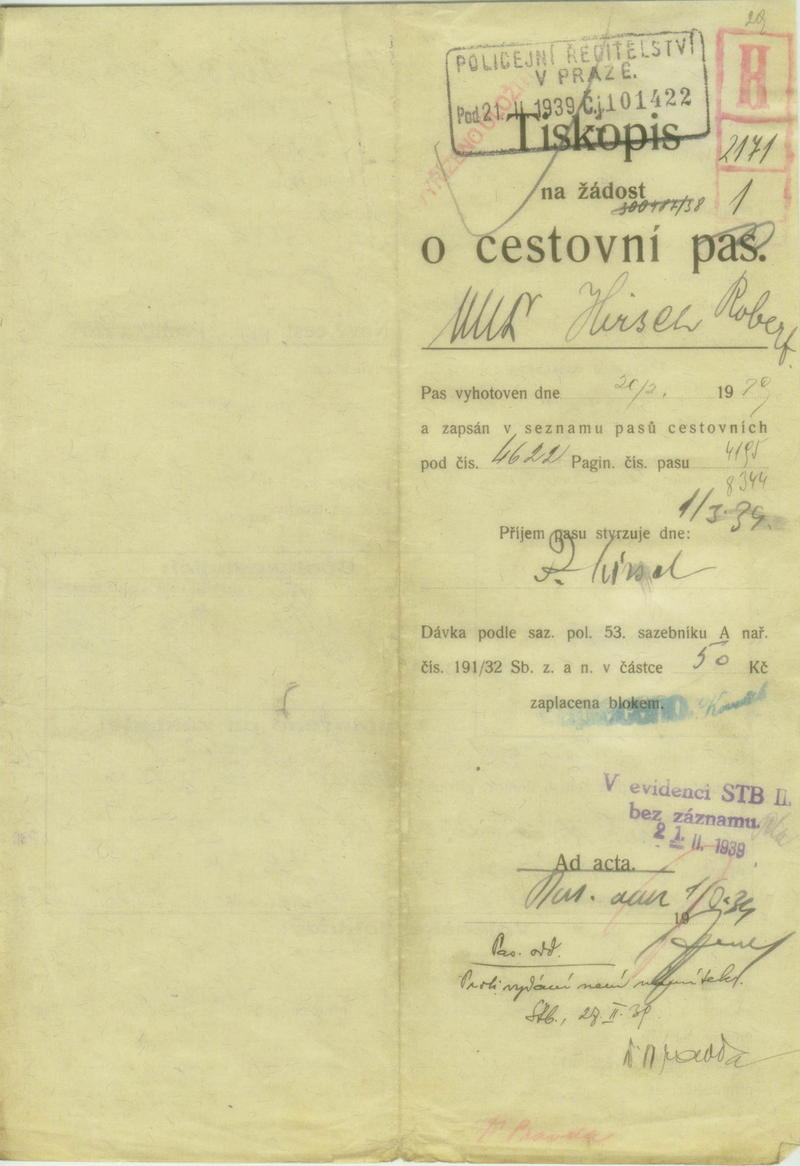 POLICEJNÍ ŘEDITELSTVÍ
V PRAZE.
Pod 21. II. 1939 Č.j. 101422
H
2171
1
Tiskopis
na žádost
o cestovní pas.
MUDr Hirsch Robert
Pas vyhotoven dne 19
a zapsán v seznamu pasů cestovních
pod čís. 4622 Pagin. čís. pasu 4195
8344
1/3. 39.
Příjem pasu stvrzuje dne:
R. Hirsch
Dávka podle saz. pol. 53. sazebníku A nař.
čís. 191/32 Sb. z. a n. v částce 50 Kč
zaplacena blokem.
V evidenci STB II.
bez záznamu.
21. II. 1939
Ad acta.
19
Pas. odd.
Proti vydání není námitek.
Stb., 28. II. 39.